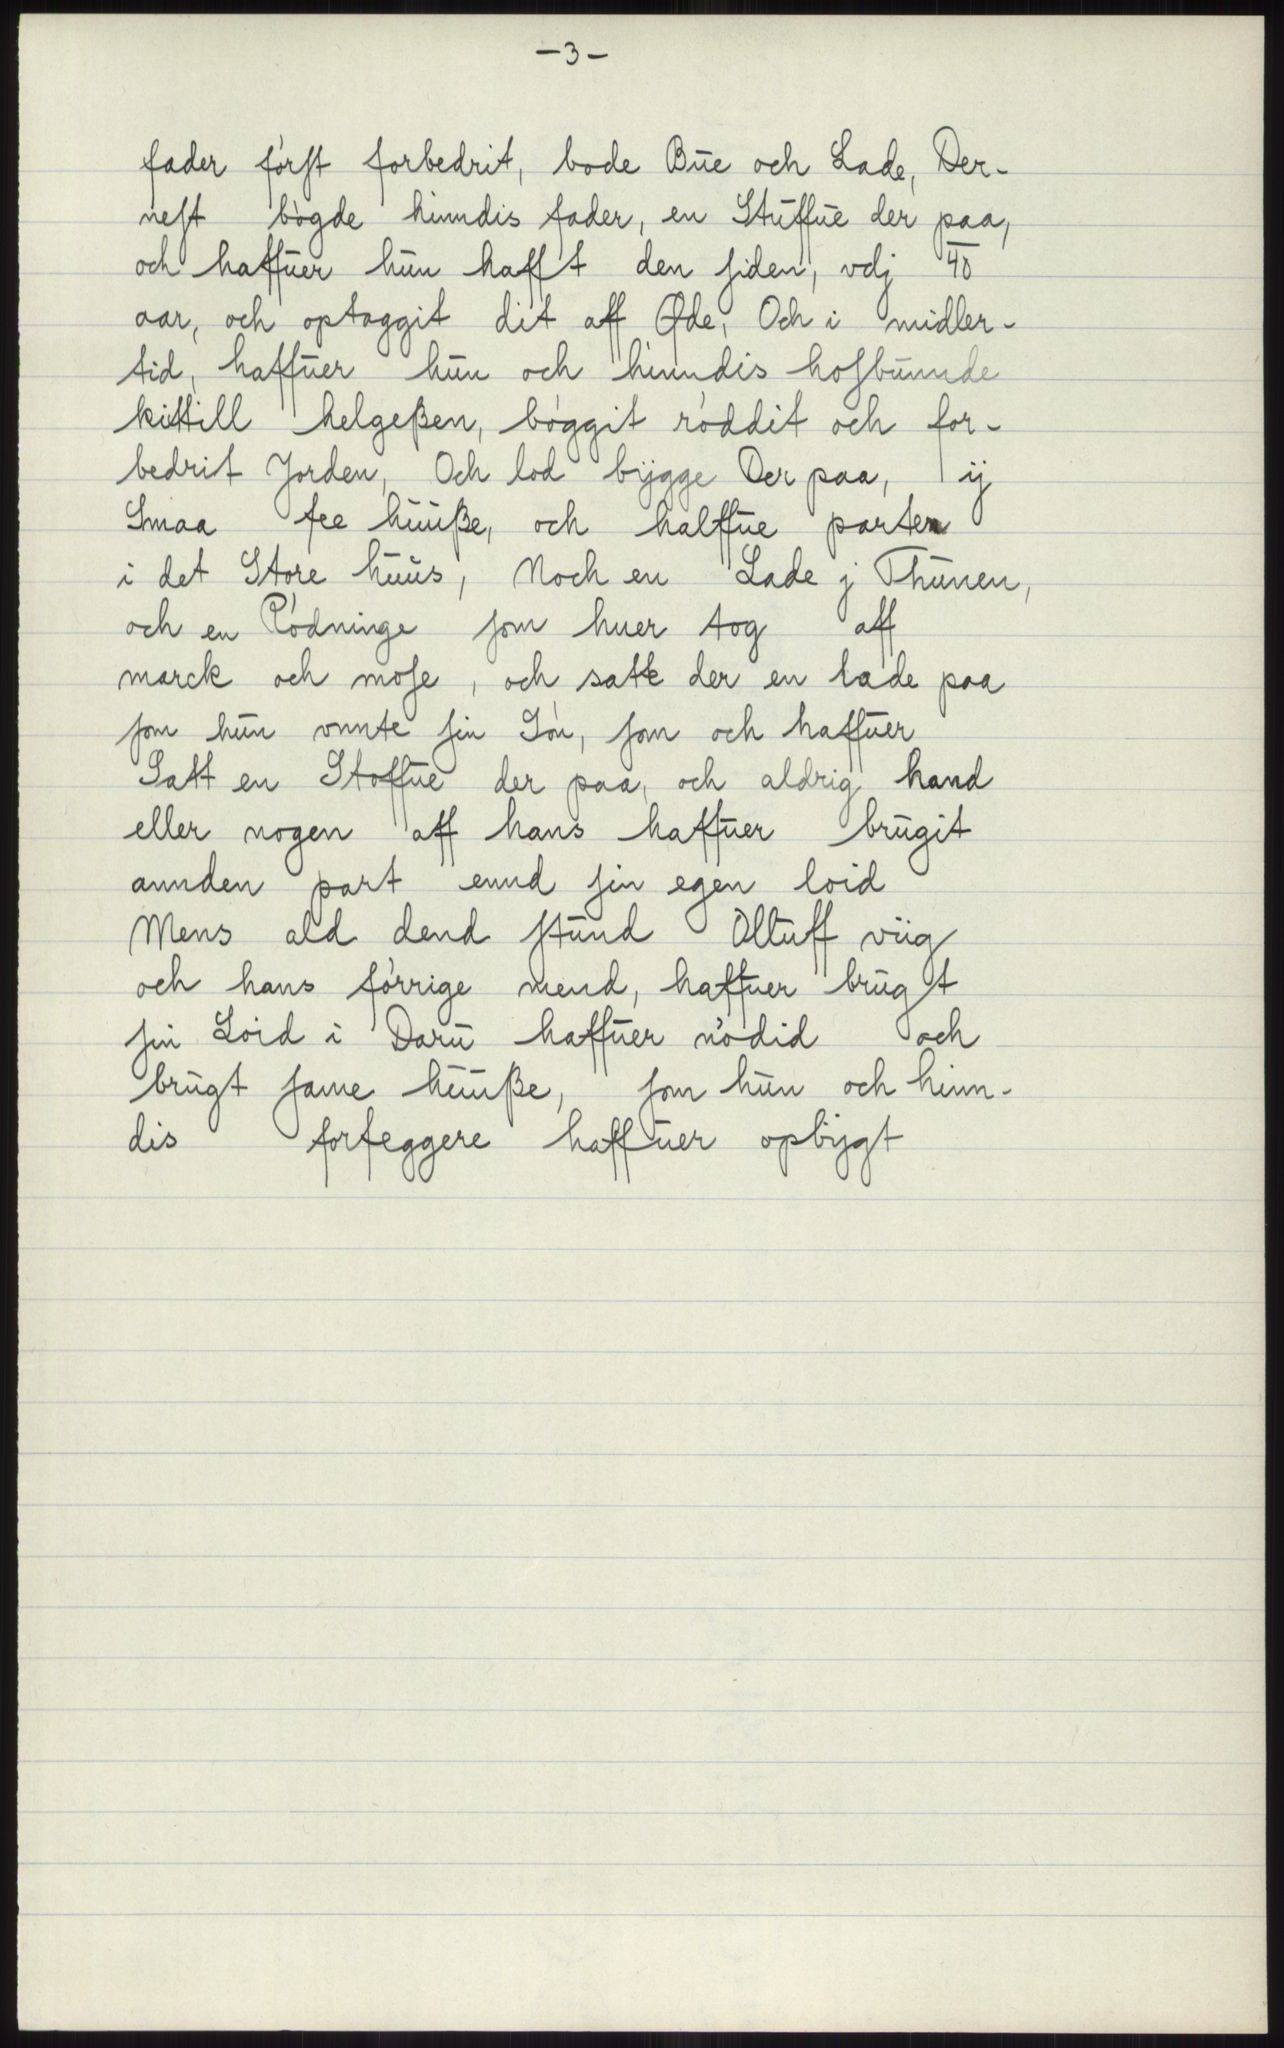 -3-
fader først forbedrit, bode Bue och Lade, Der-
nest bøgde hinndis fader, en Stuffue der paa,
och haffuer hun hafft den siden, vdj 40
aar, och optaggit dit aff Øde, Och i midler-
tid, haffuer hun och hinndis hosbunnde
kittill helgeßen, bøggit røddit och for-
bedrit Jorden, Och lod bÿgge Der paa, ij
Smaa fee huuße, och halffue parten
i det Store huus, Noch en Lade j Thunen,
och en Rødninge som huer tog aff
marck och mose, och satte der en lade paa
som hun vnnte sin Søn, som och haffuer
Satt en Stoffue der paa, och aldrig hand
eller nogen aff hans haffuer brugit
annden part ennd sin egen loid
Mens ald dend stund Olluff viig
och hans førrige mend, haffuer brugt
sin Loid i Daru haffuer nødid och
brugt same huuße, som hun och hinn-
dis forfeggere haffuer opbÿgt